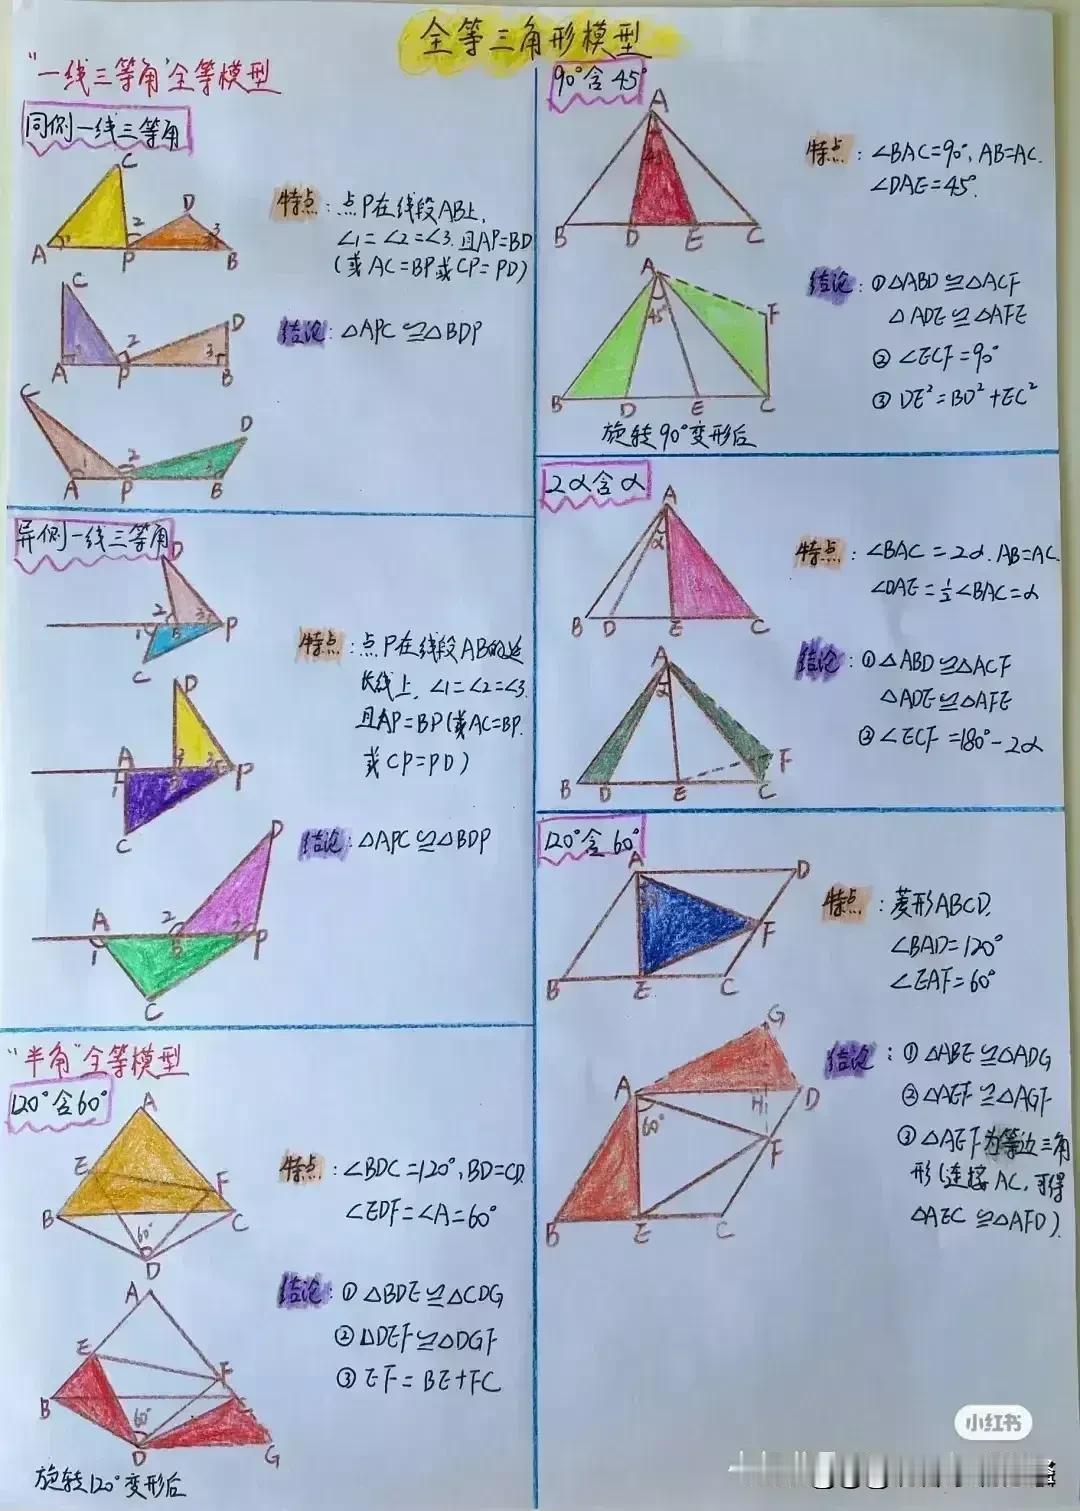 全等三角形模型
"一线三等角"全等模型
同侧一线三等角
C
D
2
1
3
A
P
B
特点：点P在线段AB上,
∠1=∠2=∠3.且AP=BD
(或AC=BP或CP=PD)
C
D
2
3
A
P
B
结论：△APC≌△BDP
C
D
1
2
3
A
P
B
异侧一线三等角
D
2
3
1
B
P
C
特点：点P在线段AB的延
长线上, ∠1=∠2=∠3.
且AP=BP(或AC=BP.
或CP=PD)
D
A
2
3
1
B
P
C
结论：△APC≌△BDP
D
A
2
3
1
B
P
C
"半角"全等模型
120°含60°
A
E
F
B
C
60°
D
特点：∠BDC=120°,BD=CD.
∠EDF=∠A=60°
A
E
F
B
C
60°
D
G
结论：①△BDE≌△CDG
②△DEF≌△DGF
③EF=BE+FC
旋转120°变形后
90°含45°
A
45°
B
D
E
C
特点：∠BAC=90°,AB=AC.
∠DAE=45°.
A
45°
F
B
D
E
C
结论：①△ABD≌△ACF
△ADE≌△AFE
②∠ECF=90°
③DE²=BD²+EC²
旋转90°变形后
2α含α
A
α
B
D
E
C
特点：∠BAC=2α.AB=AC.
∠DAE=½∠BAC=α
A
α
F
B
D
E
C
结论：①△ABD≌△ACF
△ADE≌△AFE
②∠ECF=180°-2α
120°含60°
A
D
F
B
E
C
特点：菱形ABCD,
∠BAD=120°
∠EAF=60°
G
A
H
D
60°
F
B
E
C
结论：①△ABE≌△ADG
②△AEF≌△AGF
③△AEF为等边三角
形(连接AC,可得
△AEC≌△AFD).
小红书